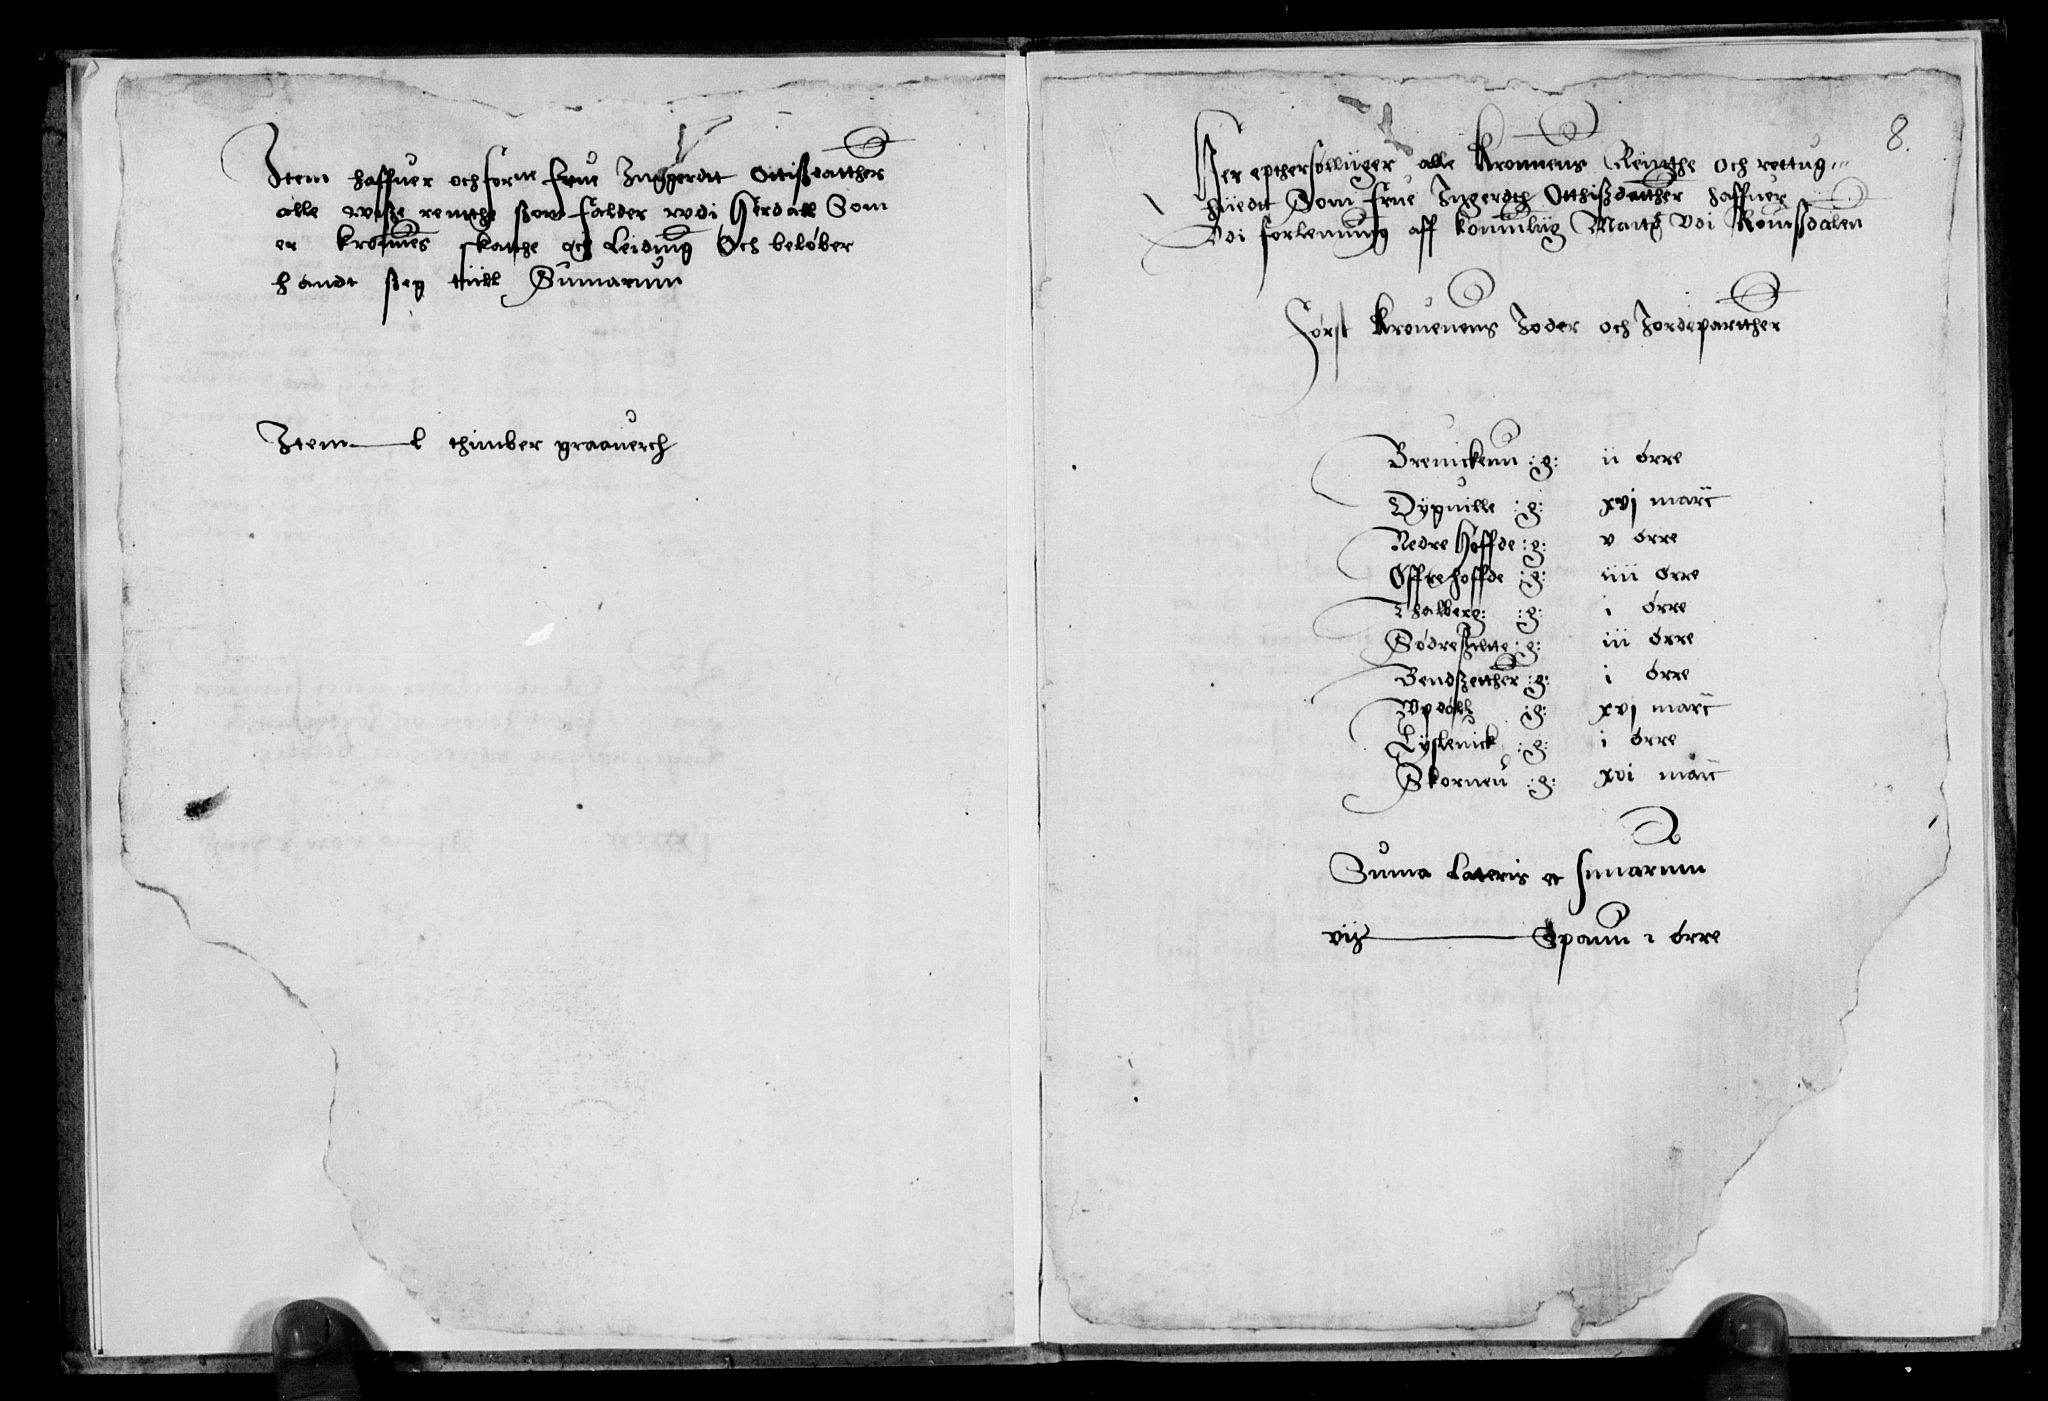 Item haffuer och forne frue Inggerdt Ottißdatther
alle wiße renthe ßom falder wdi Herdall Som
er kronnes skatthe och Leiding Och beløber
handt ßeg tiill Sumarum
Item — l thimber graauerch
8.
Her eptherføllliiger alle Kronnens Reinthe och rettug-
hiiedt Som frue Ingerdth Otthißdatther haffuer
Vdi forlenning aff konnuliig Maits Vdi Romßdalen
Først Kronenens Joder och Jordepartther
Brenickenn :g: ii ørre
Dypuille :g: xvj marc
Nedre Hoffde :g: v ørre
Øffrehoffde :g: iiii ørre
Thalberg: :g: i ørre
Sødre :g: iii ørre
Bendßetther :g: i ørre
Wpdall :g: xvj marc
Lyslenick :g: i ørre
Skorneu :g: xvi marc
Suma Lateris et sumarum
viij — Spann i ørre